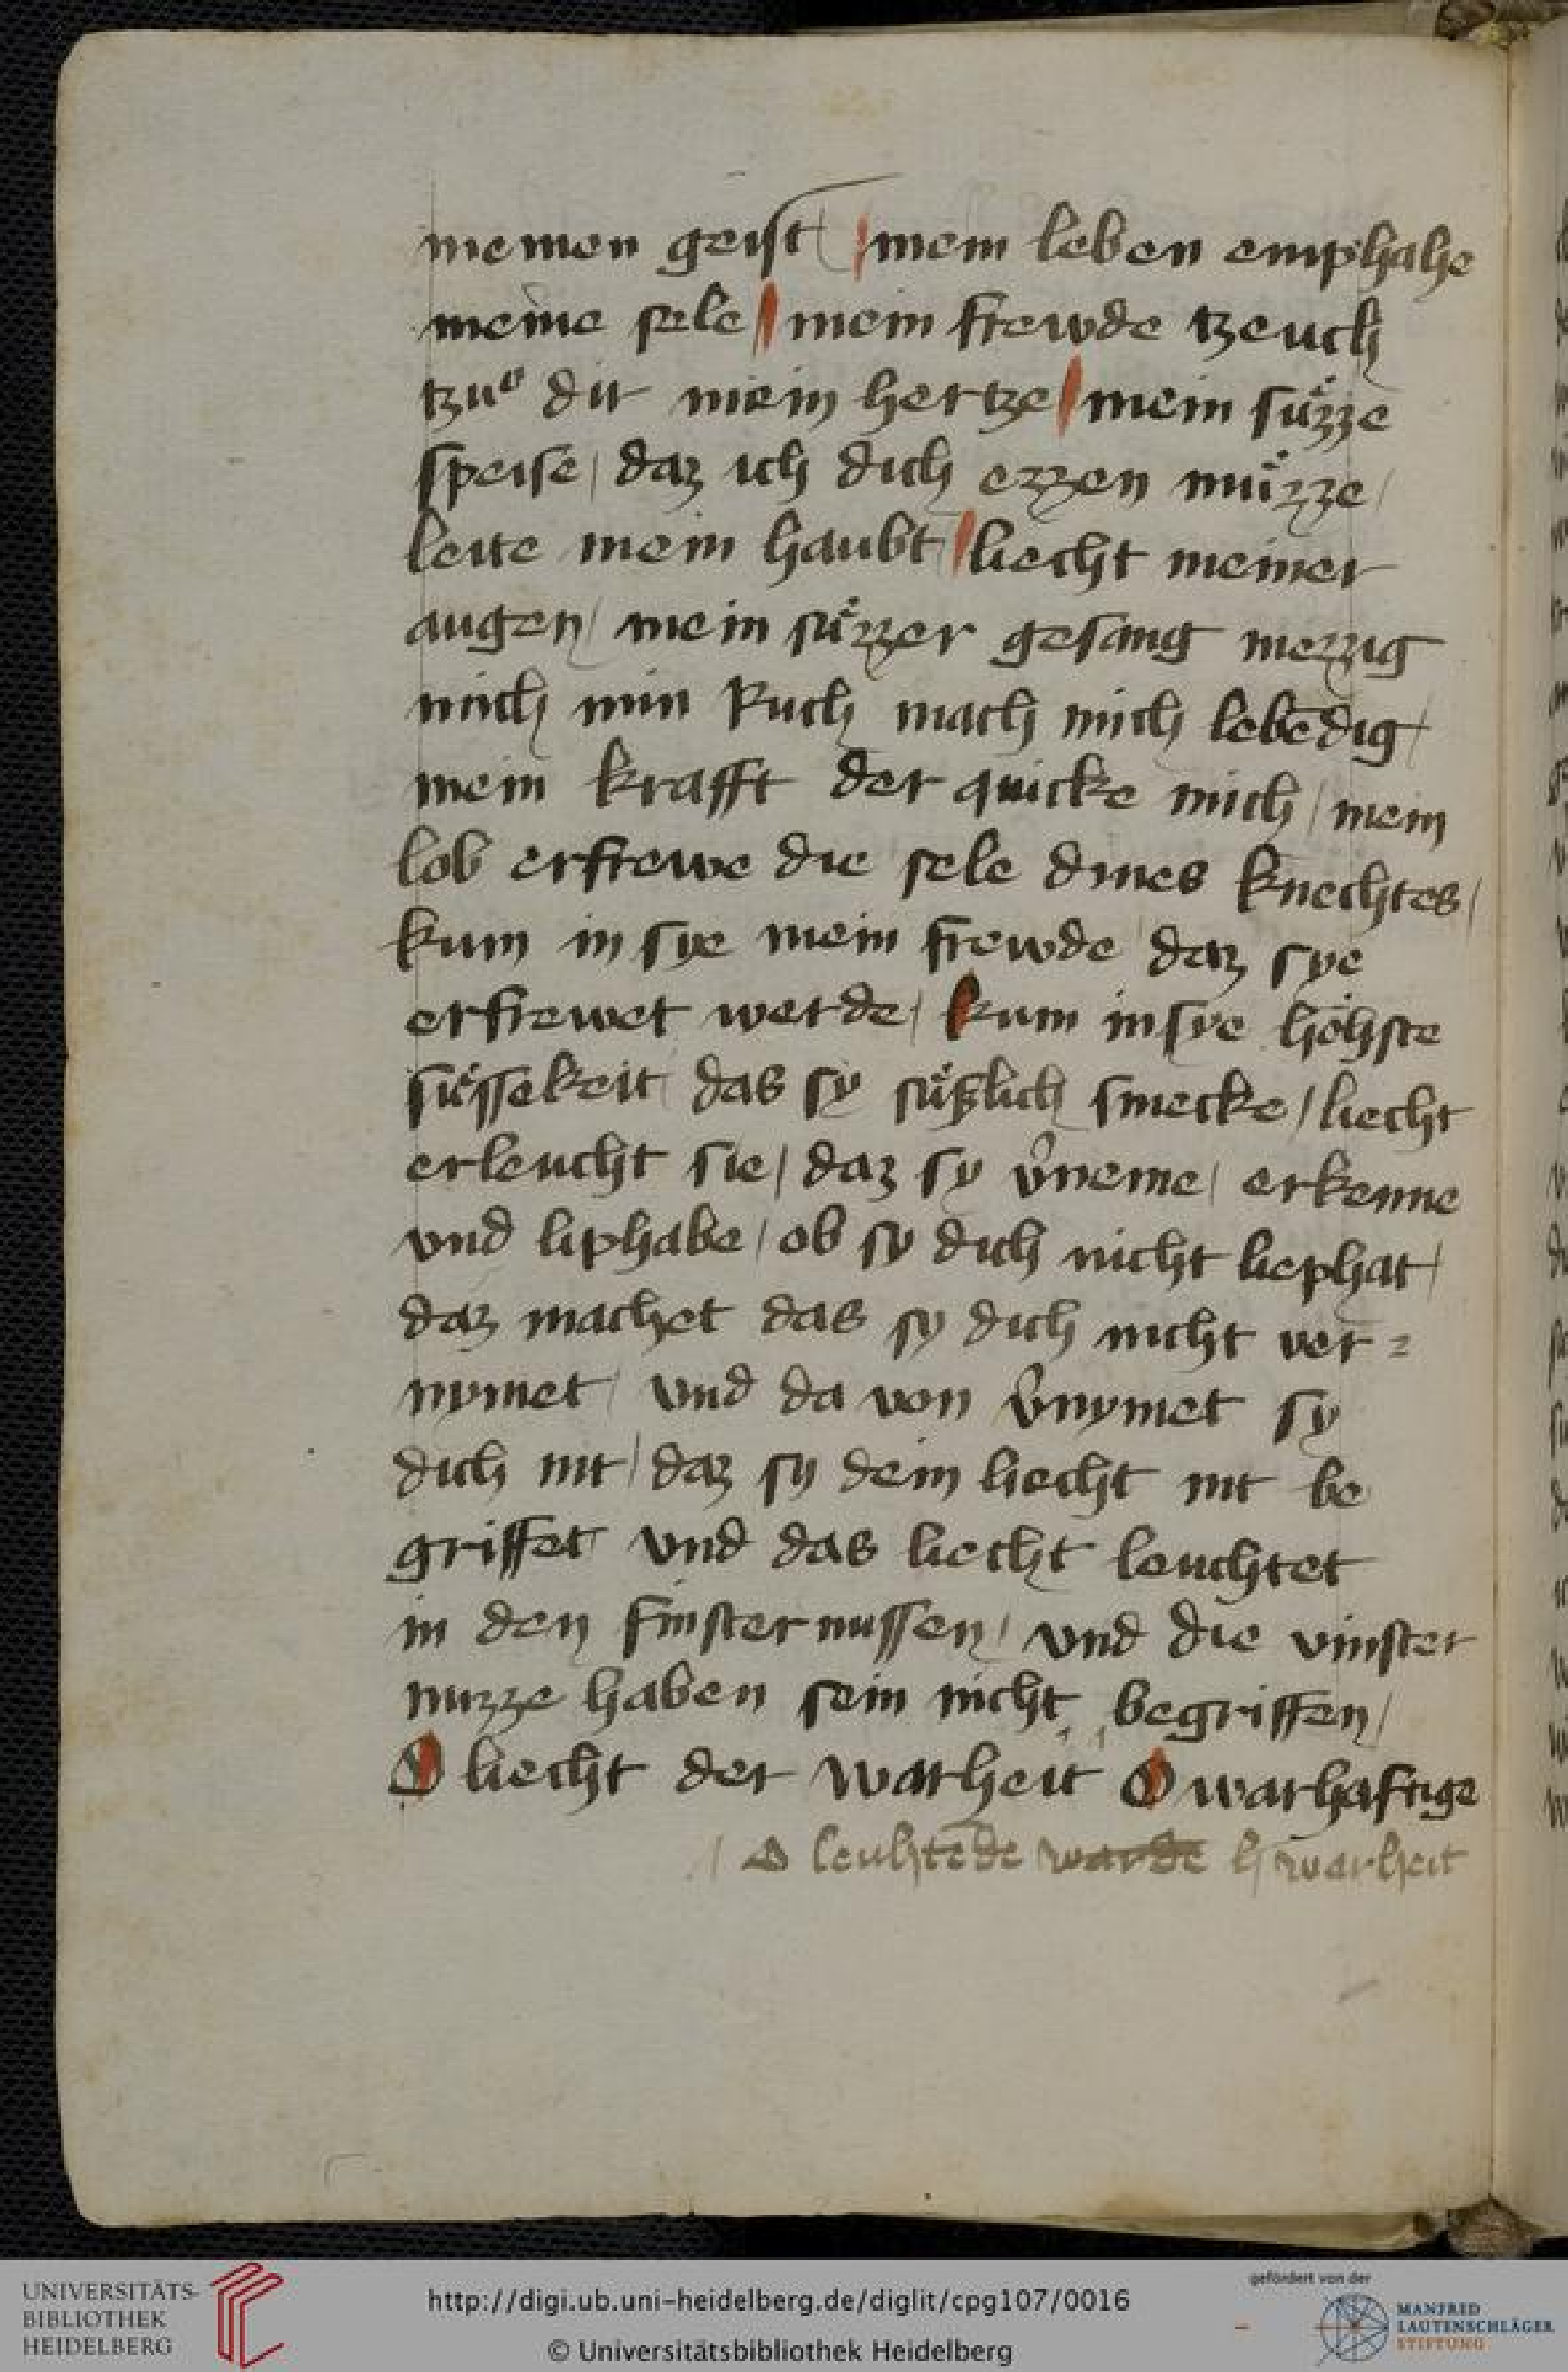 meinen geist / mein leben emphahe
meine sele / mein frewde tzeuch
tzuͦ dir mein hertze / mein suͤzze
speise / daz ich dich ezzen muͤzze /
leite mein haubt / liecht meiner
augen / mein suͤzzer gesang mezzig
mich min Ruch mach mich lebēdig /
mein krafft der quicke mich / mein
lob erfrewe die sele dines knechtes /
kum in sye mein frewde daz sye
erfrewet werde / kum in sye hoͤhste
suͤssekeit das sy suͤßlich smecke / liecht
erleucht sie / daz sy v̉neme / erkenne
vnd liphabe / ob sy dich nicht liephat /
daz machet das sy dich nicht ver=
nymet / vnd da von v̉nymet sy
dich nit / daz sy dein liecht nit be
griffet vnd das liecht leuchtet
in den finsternussen / vnd die vinster
nuzze haben sein nicht begriffen /
O liecht der warheit O warhaftige
/ O leuhtēde warde warheit
UNIVERSITÄTS-
BIBLIOTHEK
HEIDELBERG
http://digi.ub.uni-heidelberg.de/diglit/cpg107/0016
© Universitätsbibliothek Heidelberg
gefördert von der
MANFRED
LAUTENSCHLÄGER
STIFTUNG